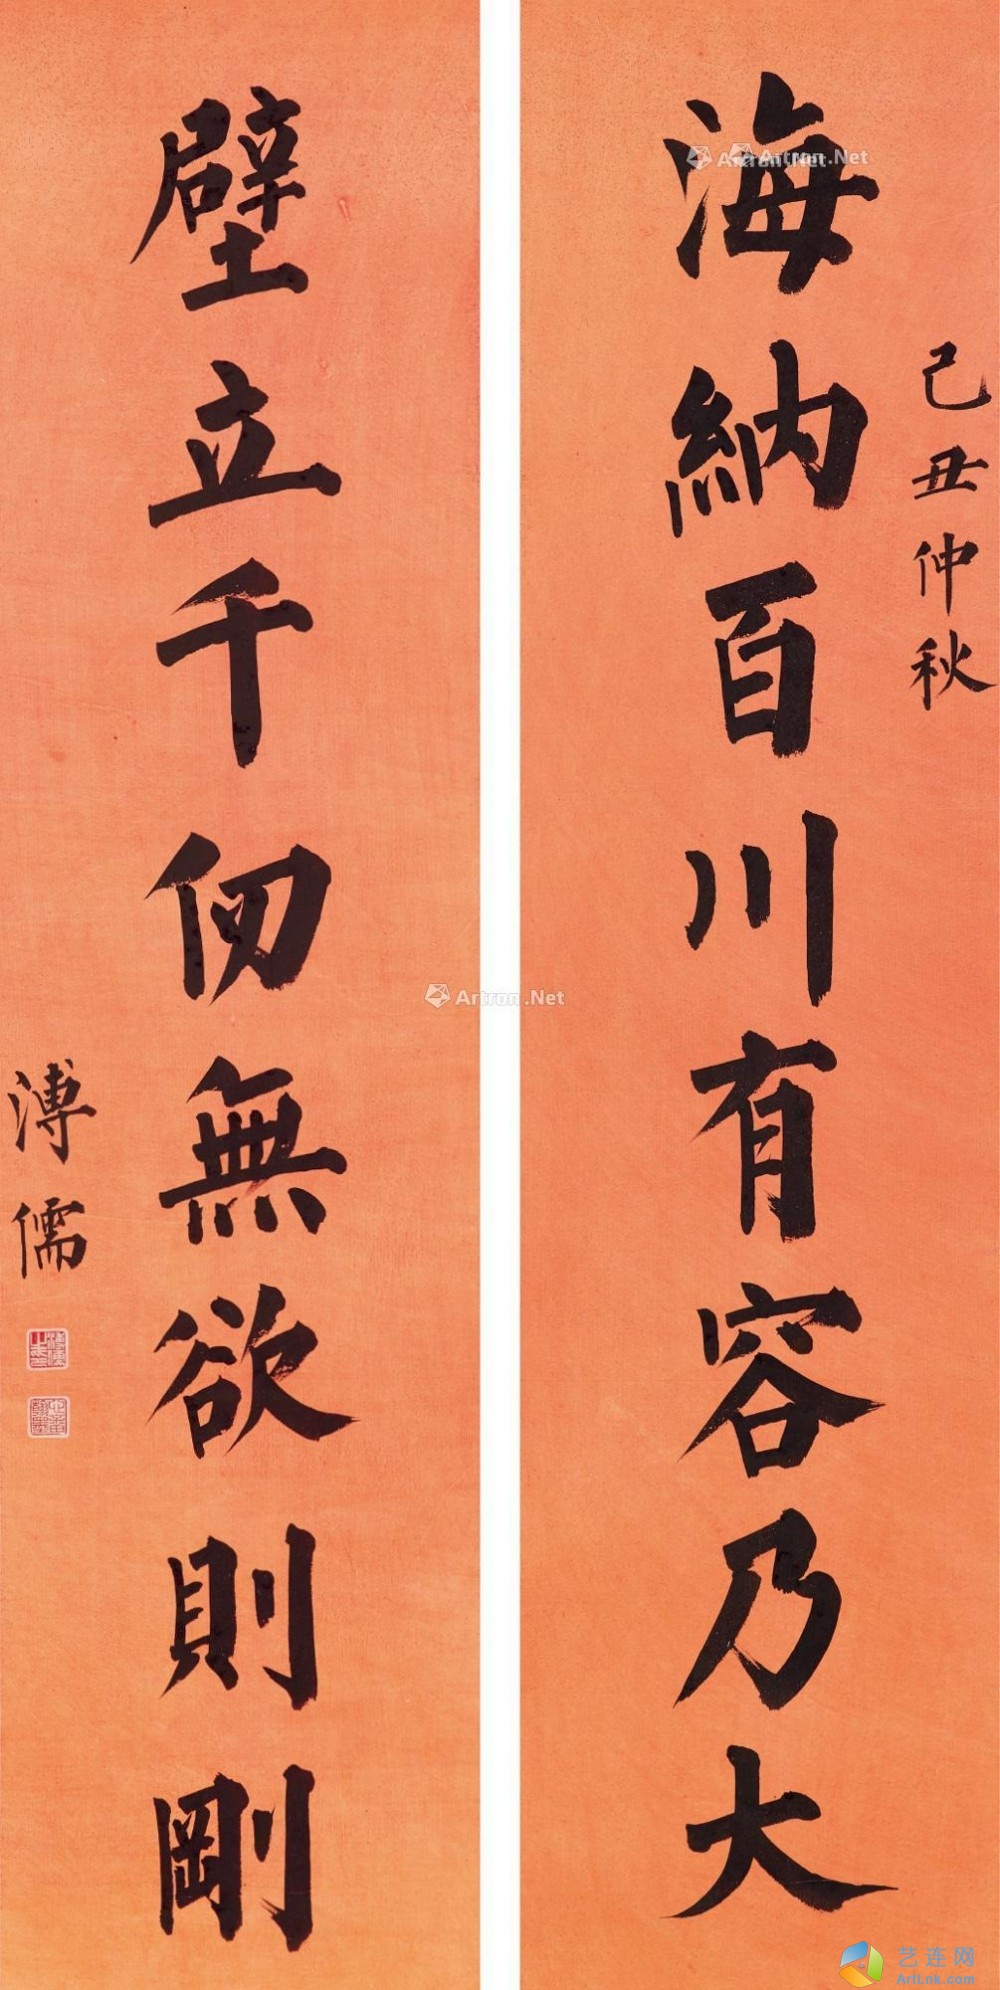 己丑仲秋
海納百川有容乃大
壁立千仞無欲則剛
溥儒
Artron.Net
Artron.Net
Artron.Net
艺连网
ArtLnk.com